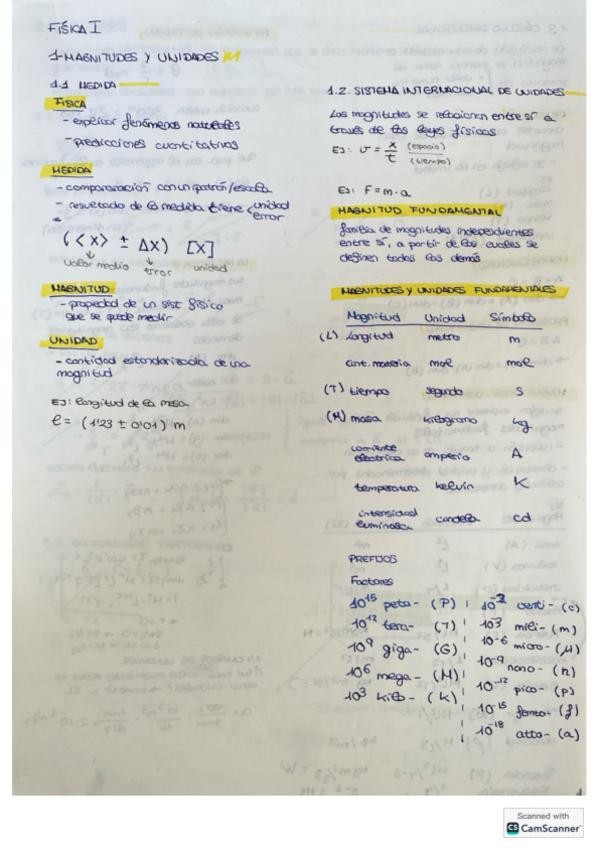 FÍSICA I
1-MAGNITUDES Y UNIDADES
1.1 MEDIDA
FISICA
- explicar fenómenos naturales
- predicciones cuantitativas
MEDIDA
- comparación con un patrón/escala
- resultado de la medida tiene < unidad
error
(<x> ± Δx) [x]
valor medio error unidad
MAGNITUD
- propiedad de un sist físico
que se puede medir
UNIDAD
- cantidad estandarizada de una
magnitud
EJ: longitud de la mesa
l = (1'23 ± 0'01) m
1.2. SISTEMA INTERNACIONAL DE UNIDADES
Las magnitudes se relacionan entre sí a
través de las leyes físicas
EJ: v = x/t (espacio) (tiempo)
EJ: F = m·a
MAGNITUD FUNDAMENTAL
familia de magnitudes independientes
entre sí, a partir de las cuales se
definen todas las demás
MAGNITUDES Y UNIDADES FUNDAMENTALES
Magnitud Unidad Símbolo
(L) Longitud metro m
cant. materia mol mol
(T) tiempo segundo s
(M) masa kilogramo kg
corriente eléctrica amperio A
temperatura kelvin K
intensidad luminosa candela cd
PREFIJOS
Factores
10¹⁵ peta - (P) 10⁻² centi - (c)
10¹² tera - (T) 10³ mili - (m)
10⁹ giga - (G) 10⁻⁶ micro - (μ)
10⁶ mega - (M) 10⁻⁹ nano - (n)
10³ kilo - (K) 10⁻¹² pico - (p)
10⁻¹⁵ femto - (f)
10⁻¹⁸ atto - (a)
Scanned with
CS CamScanner